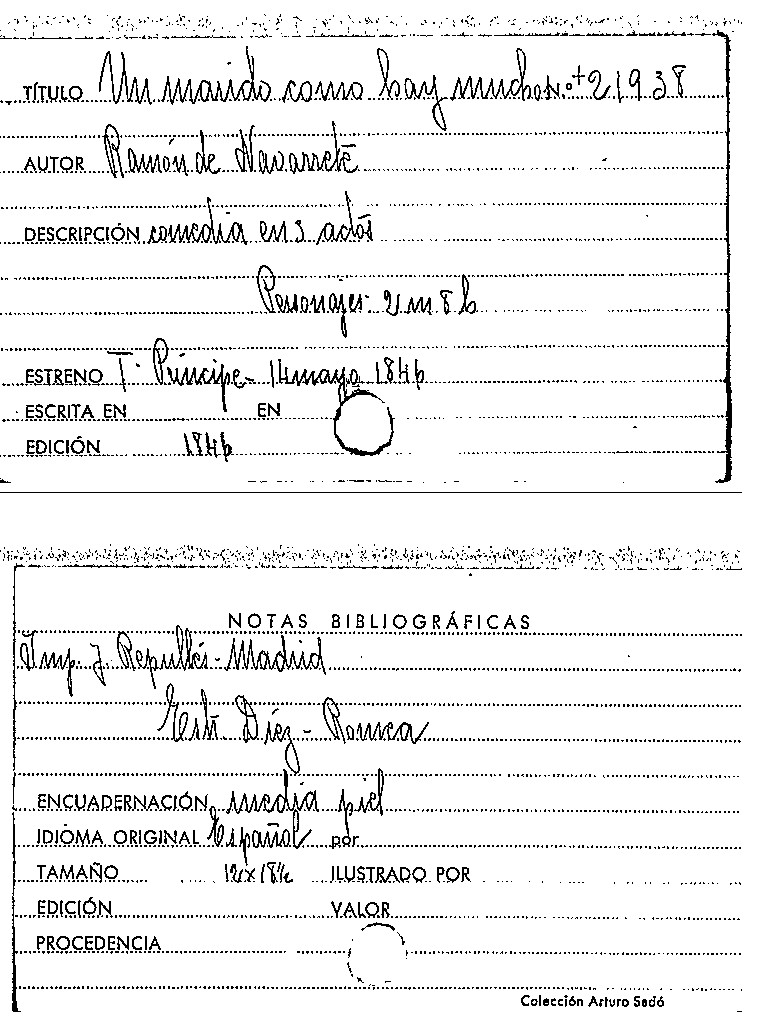 TÍTULO Un marido como hay muchos N.º+ 21938
AUTOR Ramón de Navarrete
DESCRIPCIÓN comedia en 3 actos
Personajes: 2 m 8 h
ESTRENO T. Príncipe - 14 mayo 1846
ESCRITA EN EN
EDICIÓN 1846
NOTAS BIBLIOGRÁFICAS
Imp. J. Repullés - Madrid
Díez - Romea
ENCUADERNACIÓN media piel
IDIOMA ORIGINAL Español por
TAMAÑO ILUSTRADO POR
EDICIÓN VALOR
PROCEDENCIA
Colección Arturo Sedó